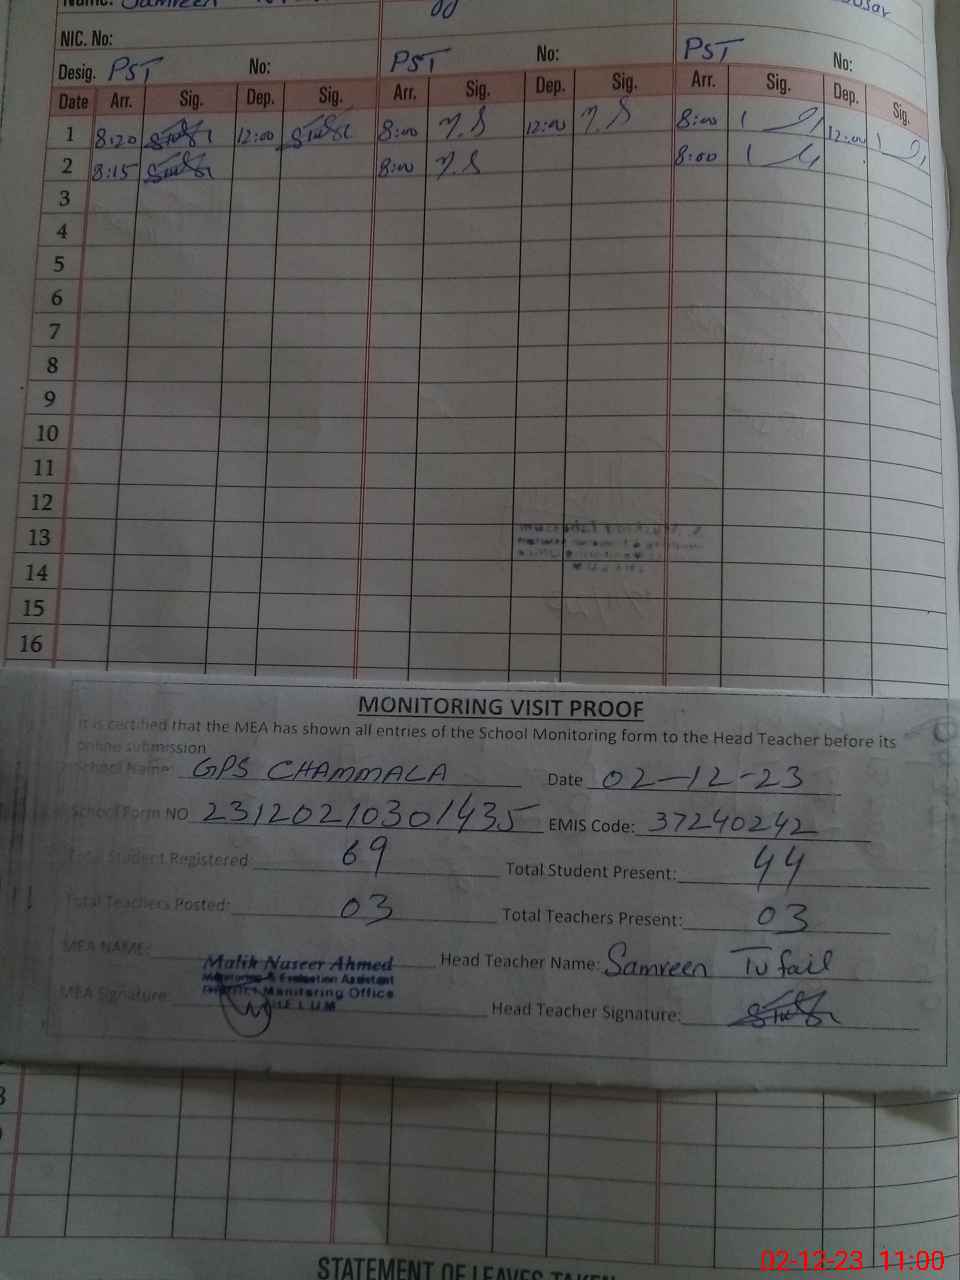 Name: Samreen
NIC. No:
Desig. PST No: PST No: PST No:
Date Arr. Sig. Dep. Sig. Arr. Sig. Dep. Sig. Arr. Sig. Dep. Sig.
1 8:20 12:00 8:00 12:00 8:00 12:00
2 8:15 8:00 8:00
3
4
5
6
7
8
9
10
11
12
13
14
15
16
MONITORING VISIT PROOF
It is certified that the MEA has shown all entries of the School Monitoring form to the Head Teacher before its
online submission
School Name: GPS CHAMMALA Date 02-12-23
School Form NO 23120210301435 EMIS Code: 37240242
Total Student Registered: 69 Total Student Present: 44
Total Teachers Posted: 03 Total Teachers Present: 03
MEA NAME: Malik Naseer Ahmed Head Teacher Name: Samreen Tufail
Monitoring & Evaluation Assistant
District Monitoring Office
MEA Signature: JHELUM Head Teacher Signature:
STATEMENT OF LEAVES TAKEN
02-12-23 11:00